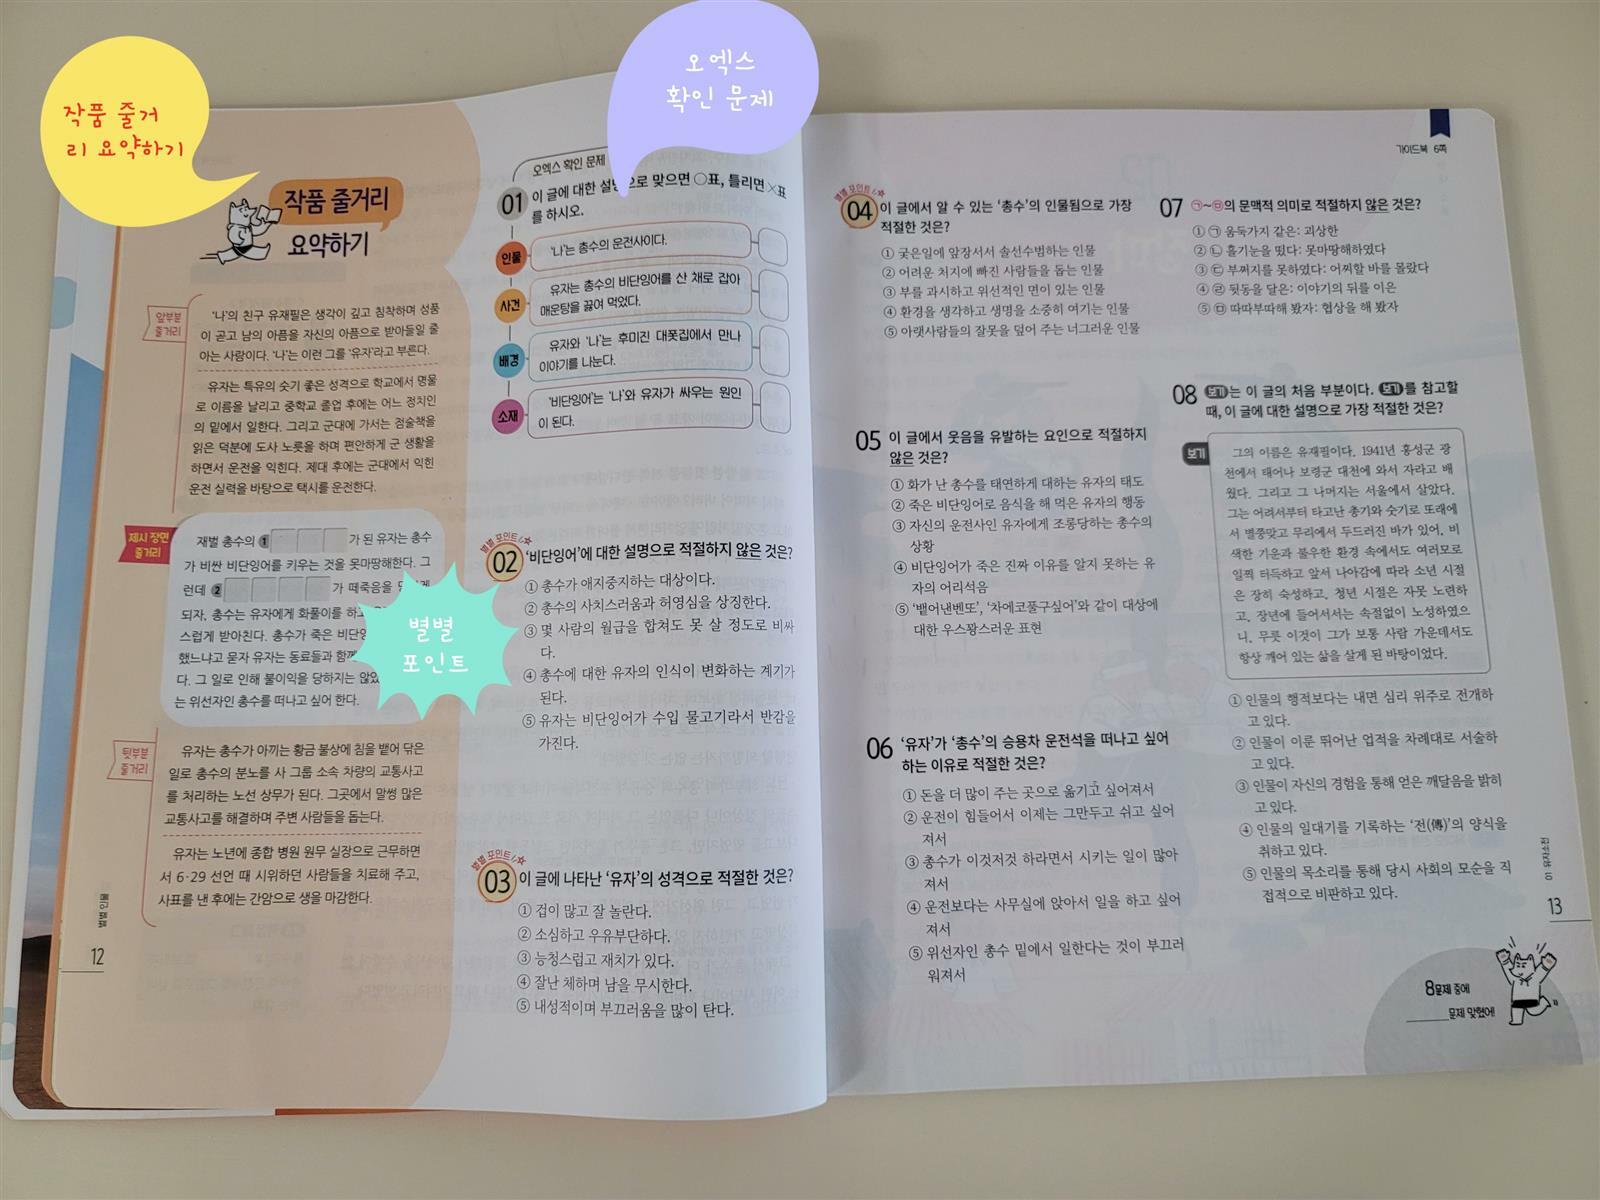 작품 줄거
리 요약하기
오엑스
확인 문제
별별
포인트
작품 줄거리
요약하기
앞부분
줄거리
'나'의 친구 유재필은 생각이 깊고 침착하며 성품
이 곧고 남의 아픔을 자신의 아픔으로 받아들일 줄
아는 사람이다. '나'는 이런 그를 '유자'라고 부른다.
유자는 특유의 숫기 좋은 성격으로 학교에서 명물
로 이름을 날리고 중학교 졸업 후에는 어느 정치인
의 밑에서 일한다. 그리고 군대에 가서는 점술책을
읽은 덕분에 도사 노릇을 하며 편안하게 군 생활을
하면서 운전을 익힌다. 제대 후에는 군대에서 익힌
운전 실력을 바탕으로 택시를 운전한다.
제시 장면
줄거리
재벌 총수의 1 가 된 유자는 총수
가 비싼 비단잉어를 키우는 것을 못마땅해한다. 그
런데 2 가 떼죽음을
되자, 총수는 유자에게 화풀이를
스럽게 받아친다. 총수가 죽은
했느냐고 묻자 유자는 동료들과
다. 그 일로 인해 불이익을 당하지는
는 위선자인 총수를 떠나고 싶어 한다.
뒷부분
줄거리
유자는 총수가 아끼는 황금 불상에 침을 뱉어 닦은
일로 총수의 분노를 사 그룹 소속 차량의 교통사고
를 처리하는 노선 상무가 된다. 그곳에서 말썽 많은
교통사고를 해결하며 주변 사람들을 돕는다.
유자는 노년에 종합 병원 원무 실장으로 근무하면
서 6·29 선언 때 시위하던 사람들을 치료해 주고,
사표를 낸 후에는 간암으로 생을 마감한다.
별별 인물
12
오엑스 확인 문제
01 이 글에 대한 설명으로 맞으면 ○표, 틀리면 ×표
를 하시오.
인물
'나'는 총수의 운전사이다.
사건
유자는 총수의 비단잉어를 산 채로 잡아
매운탕을 끓여 먹었다.
배경
유자와 '나'는 후미진 대폿집에서 만나
이야기를 나눈다.
소재
'비단잉어'는 '나'와 유자가 싸우는 원인
이 된다.
별별 포인트
02 '비단잉어'에 대한 설명으로 적절하지 않은 것은?
① 총수가 애지중지하는 대상이다.
② 총수의 사치스러움과 허영심을 상징한다.
③ 몇 사람의 월급을 합쳐도 못 살 정도로 비싸
다.
④ 총수에 대한 유자의 인식이 변화하는 계기가
된다.
⑤ 유자는 비단잉어가 수입 물고기라서 반감을
가진다.
별별 포인트
03 이 글에 나타난 '유자'의 성격으로 적절한 것은?
① 겁이 많고 잘 놀란다.
② 소심하고 우유부단하다.
③ 능청스럽고 재치가 있다.
④ 잘난 체하며 남을 무시한다.
⑤ 내성적이며 부끄러움을 많이 탄다.
가이드북 6쪽
별별 포인트
04 이 글에서 알 수 있는 '총수'의 인물됨으로 가장
적절한 것은?
① 궂은일에 앞장서서 솔선수범하는 인물
② 어려운 처지에 빠진 사람들을 돕는 인물
③ 부를 과시하고 위선적인 면이 있는 인물
④ 환경을 생각하고 생명을 소중히 여기는 인물
⑤ 아랫사람들의 잘못을 덮어 주는 너그러운 인물
05 이 글에서 웃음을 유발하는 요인으로 적절하지
않은 것은?
① 화가 난 총수를 태연하게 대하는 유자의 태도
② 죽은 비단잉어로 음식을 해 먹은 유자의 행동
③ 자신의 운전사인 유자에게 조롱당하는 총수의
상황
④ 비단잉어가 죽은 진짜 이유를 알지 못하는 유
자의 어리석음
⑤ '뱉어낸벤또', '차에코풀구싶어'와 같이 대상에
대한 우스꽝스러운 표현
06 '유자'가 '총수'의 승용차 운전석을 떠나고 싶어
하는 이유로 적절한 것은?
① 돈을 더 많이 주는 곳으로 옮기고 싶어져서
② 운전이 힘들어서 이제는 그만두고 쉬고 싶어
져서
③ 총수가 이것저것 하라면서 시키는 일이 많아
져서
④ 운전보다는 사무실에 앉아서 일을 하고 싶어
져서
⑤ 위선자인 총수 밑에서 일한다는 것이 부끄러
워져서
07 ㉠~㉤의 문맥적 의미로 적절하지 않은 것은?
① ㉠ 움둑가지 같은: 괴상한
② ㉡ 흘기눈을 떴다: 못마땅해하였다
③ ㉢ 부쩌지를 못하였다: 어찌할 바를 몰랐다
④ ㉣ 뒷동을 달은: 이야기의 뒤를 이은
⑤ ㉤ 따따부따해 봤자: 협상을 해 봤자
08 보기는 이 글의 처음 부분이다. 보기를 참고할
때, 이 글에 대한 설명으로 가장 적절한 것은?
보기
그의 이름은 유재필이다. 1941년 홍성군 광
천에서 태어나 보령군 대천에 와서 자라고 배
웠다. 그리고 그 나머지는 서울에서 살았다.
그는 어려서부터 타고난 총기와 숫기로 또래에
서 별쭝맞고 무리에서 두드러진 바가 있어, 비
색한 기운과 불우한 환경 속에서도 여러모로
일찍 터득하고 앞서 나아감에 따라 소년 시절
은 장히 숙성하고, 청년 시절은 자못 노련하
고, 장년에 들어서서는 속절없이 노성하였으
니, 무릇 이것이 그가 보통 사람 가운데서도
항상 깨어 있는 삶을 살게 된 바탕이었다.
① 인물의 행적보다는 내면 심리 위주로 전개하
고 있다.
② 인물이 이룬 뛰어난 업적을 차례대로 서술하
고 있다.
③ 인물이 자신의 경험을 통해 얻은 깨달음을 밝히
고 있다.
④ 인물의 일대기를 기록하는 '전(傳)'의 양식을
취하고 있다.
⑤ 인물의 목소리를 통해 당시 사회의 모순을 직
접적으로 비판하고 있다.
01 유자소전
13
8문제 중에
문제 맞혔어!